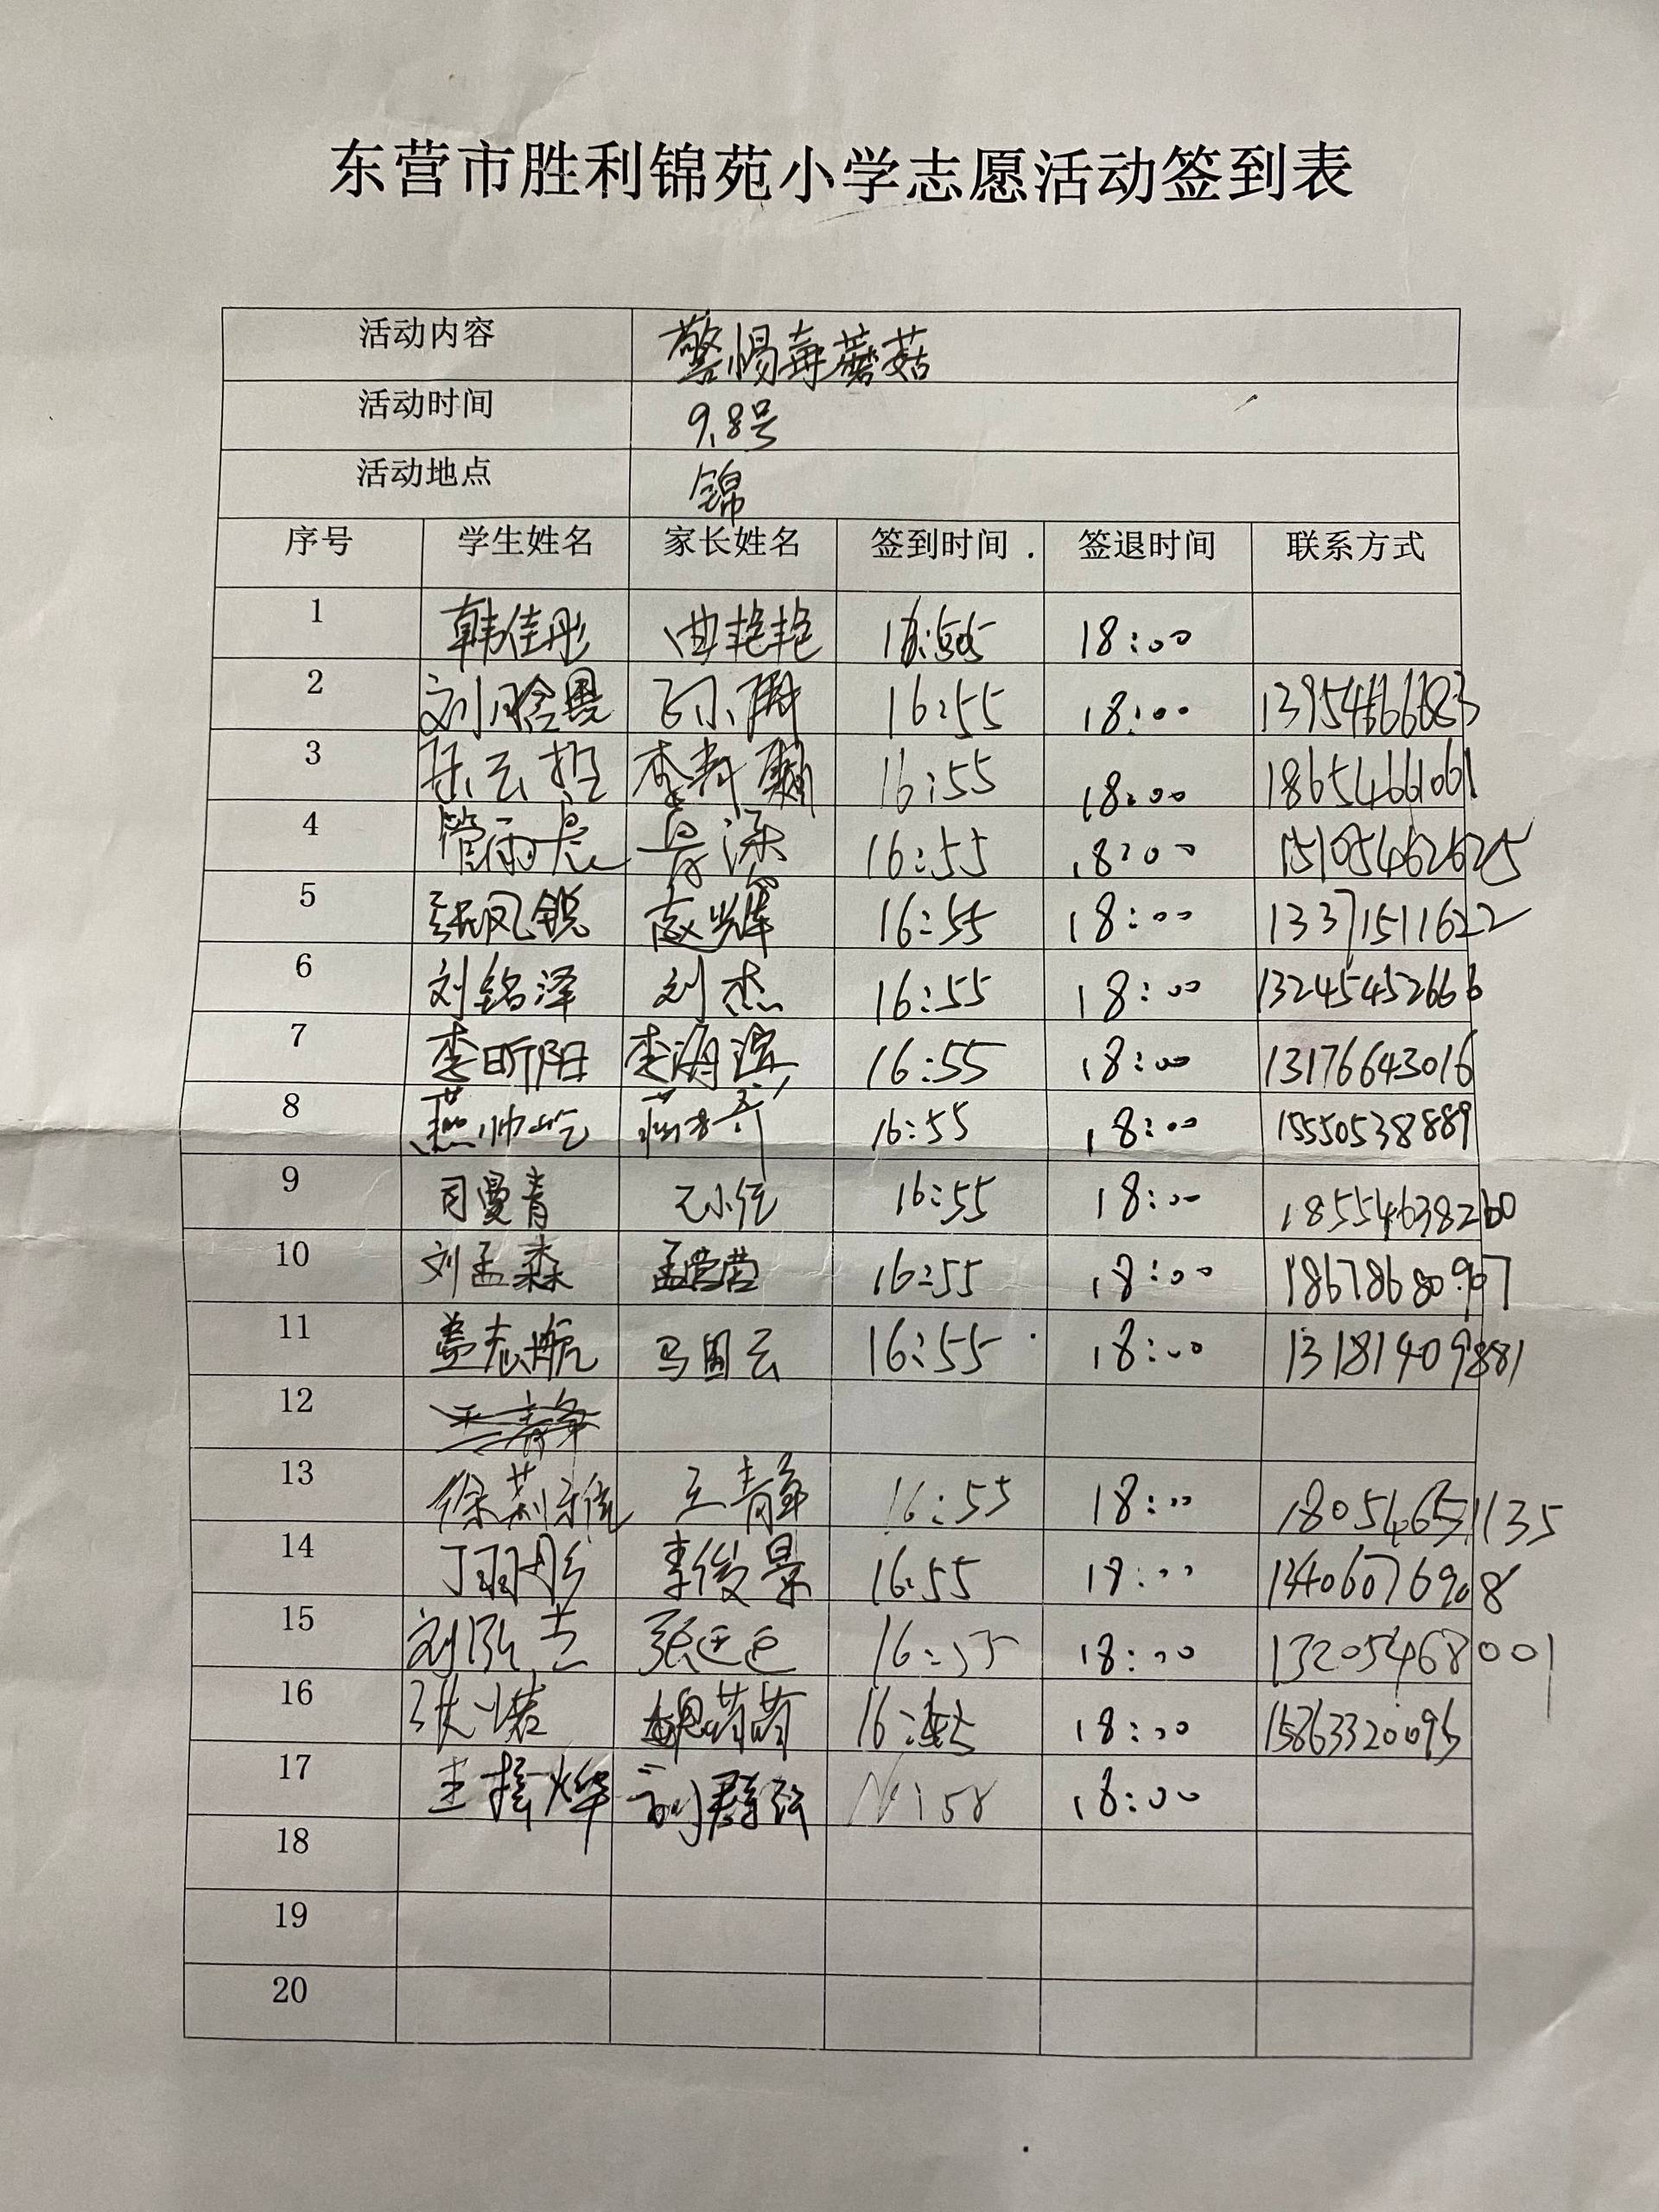 东营市胜利锦苑小学志愿活动签到表
活动内容 警惕毒蘑菇
活动时间 9.8号
活动地点 锦
序号 学生姓名 家长姓名 签到时间 签退时间 联系方式
1 韩佳彤 曲艳艳 16:55 18:00
2 刘晗恩 16:55 18:00
3 16:55 18:00 18654661061
4 管雨晨 16:55 18:00 15105462625
5 张凤锐 赵辉 16:55 18:00 13371511622
6 刘铭泽 刘杰 16:55 18:00 13245452666
7 李昕阳 李海滨 16:55 18:00 13176643016
8 燕帅屹 16:55 18:00 15550538889
9 司曼青 16:55 18:00 18554638260
10 刘孟森 孟营营 16:55 18:00 18678680907
11 盖志航 马国云 16:55 18:00 13181409881
12 王静
13 徐莉雅 王静 16:55 18:00 18054651135
14 丁雨彤 李俊景 16:55 18:00 13406076908
15 刘弘吉 张迋迋 16:55 18:00 13205468001
16 张诺 魏芮芮 16:55 18:00 15863320095
17 刘群弘 18:00
18
19
20